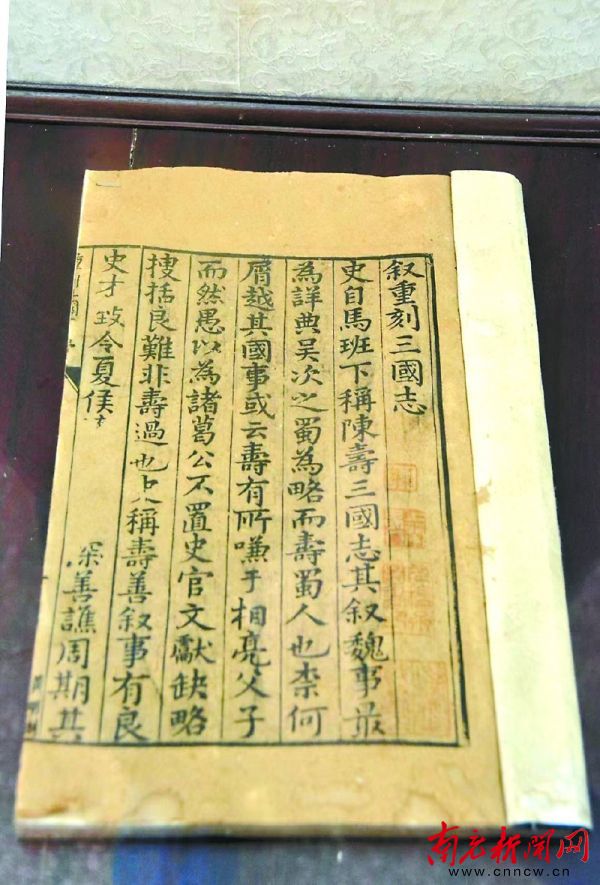 叙重刻三國志
史自馬班下稱陳壽三國志其叙魏事最
為詳典吳次之蜀為略而壽蜀人也柰何
屑越其國事或云壽有所嗛于相亮父子
而然愚以為諸葛公不置史官文獻缺略
捜括良難非壽過也史稱壽善叙事有良
史才致令夏侯 深善譙周期其
南充新闻网
www.cnncw.cn